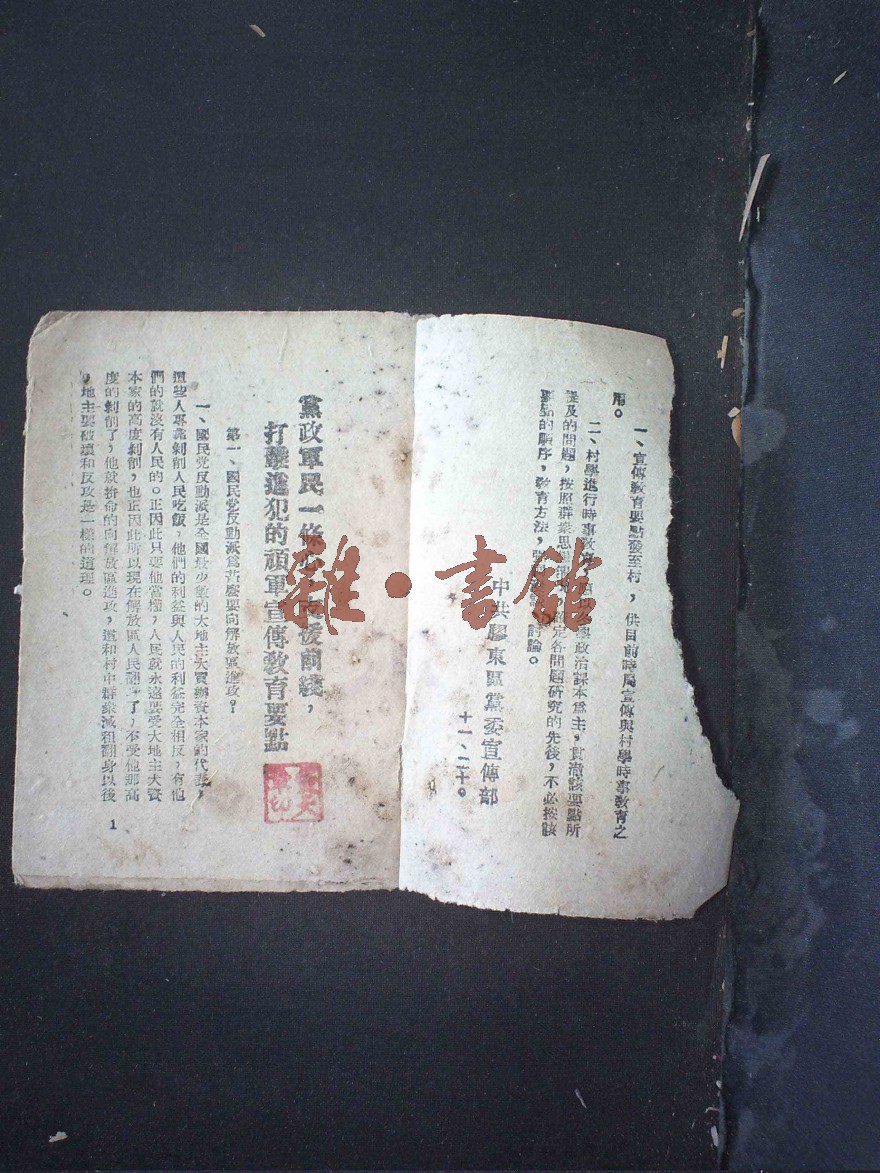 一、宣傳教育要點發至村，供目前時局宣傳與村學時事教育之
用。
二、村學進行時事教 政治課本爲主，貫澈該要點所
提及的問題，按照群衆思想 定各問題研究的先後，不必按該
要點的順序，教育方法， 討論。
中共膠東區黨委宣傳部
十一、二十。
黨政軍民一條心，支援前綫，
打擊進犯的頑軍宣傳教育要點
第一、國民党反動派爲甚麽要向解放區進攻？
一、國民党反動派是全國最少數的大地主大買辦資本家的代表，
這些人專靠剝削人民吃飯，他們的利益與人民的利益完全相反，有他
們的就沒有人民的。正因此只要他當權，人民就永遠要受大地主大資
本家的高度剝削，也正因此所以現在解放區人民翻了，不受他那高
度的剝削了，他就拚命的向解放區進攻，這和村中群衆減租翻身以後
，地主要破壞和反攻是一樣的道理。
1
雜·書館